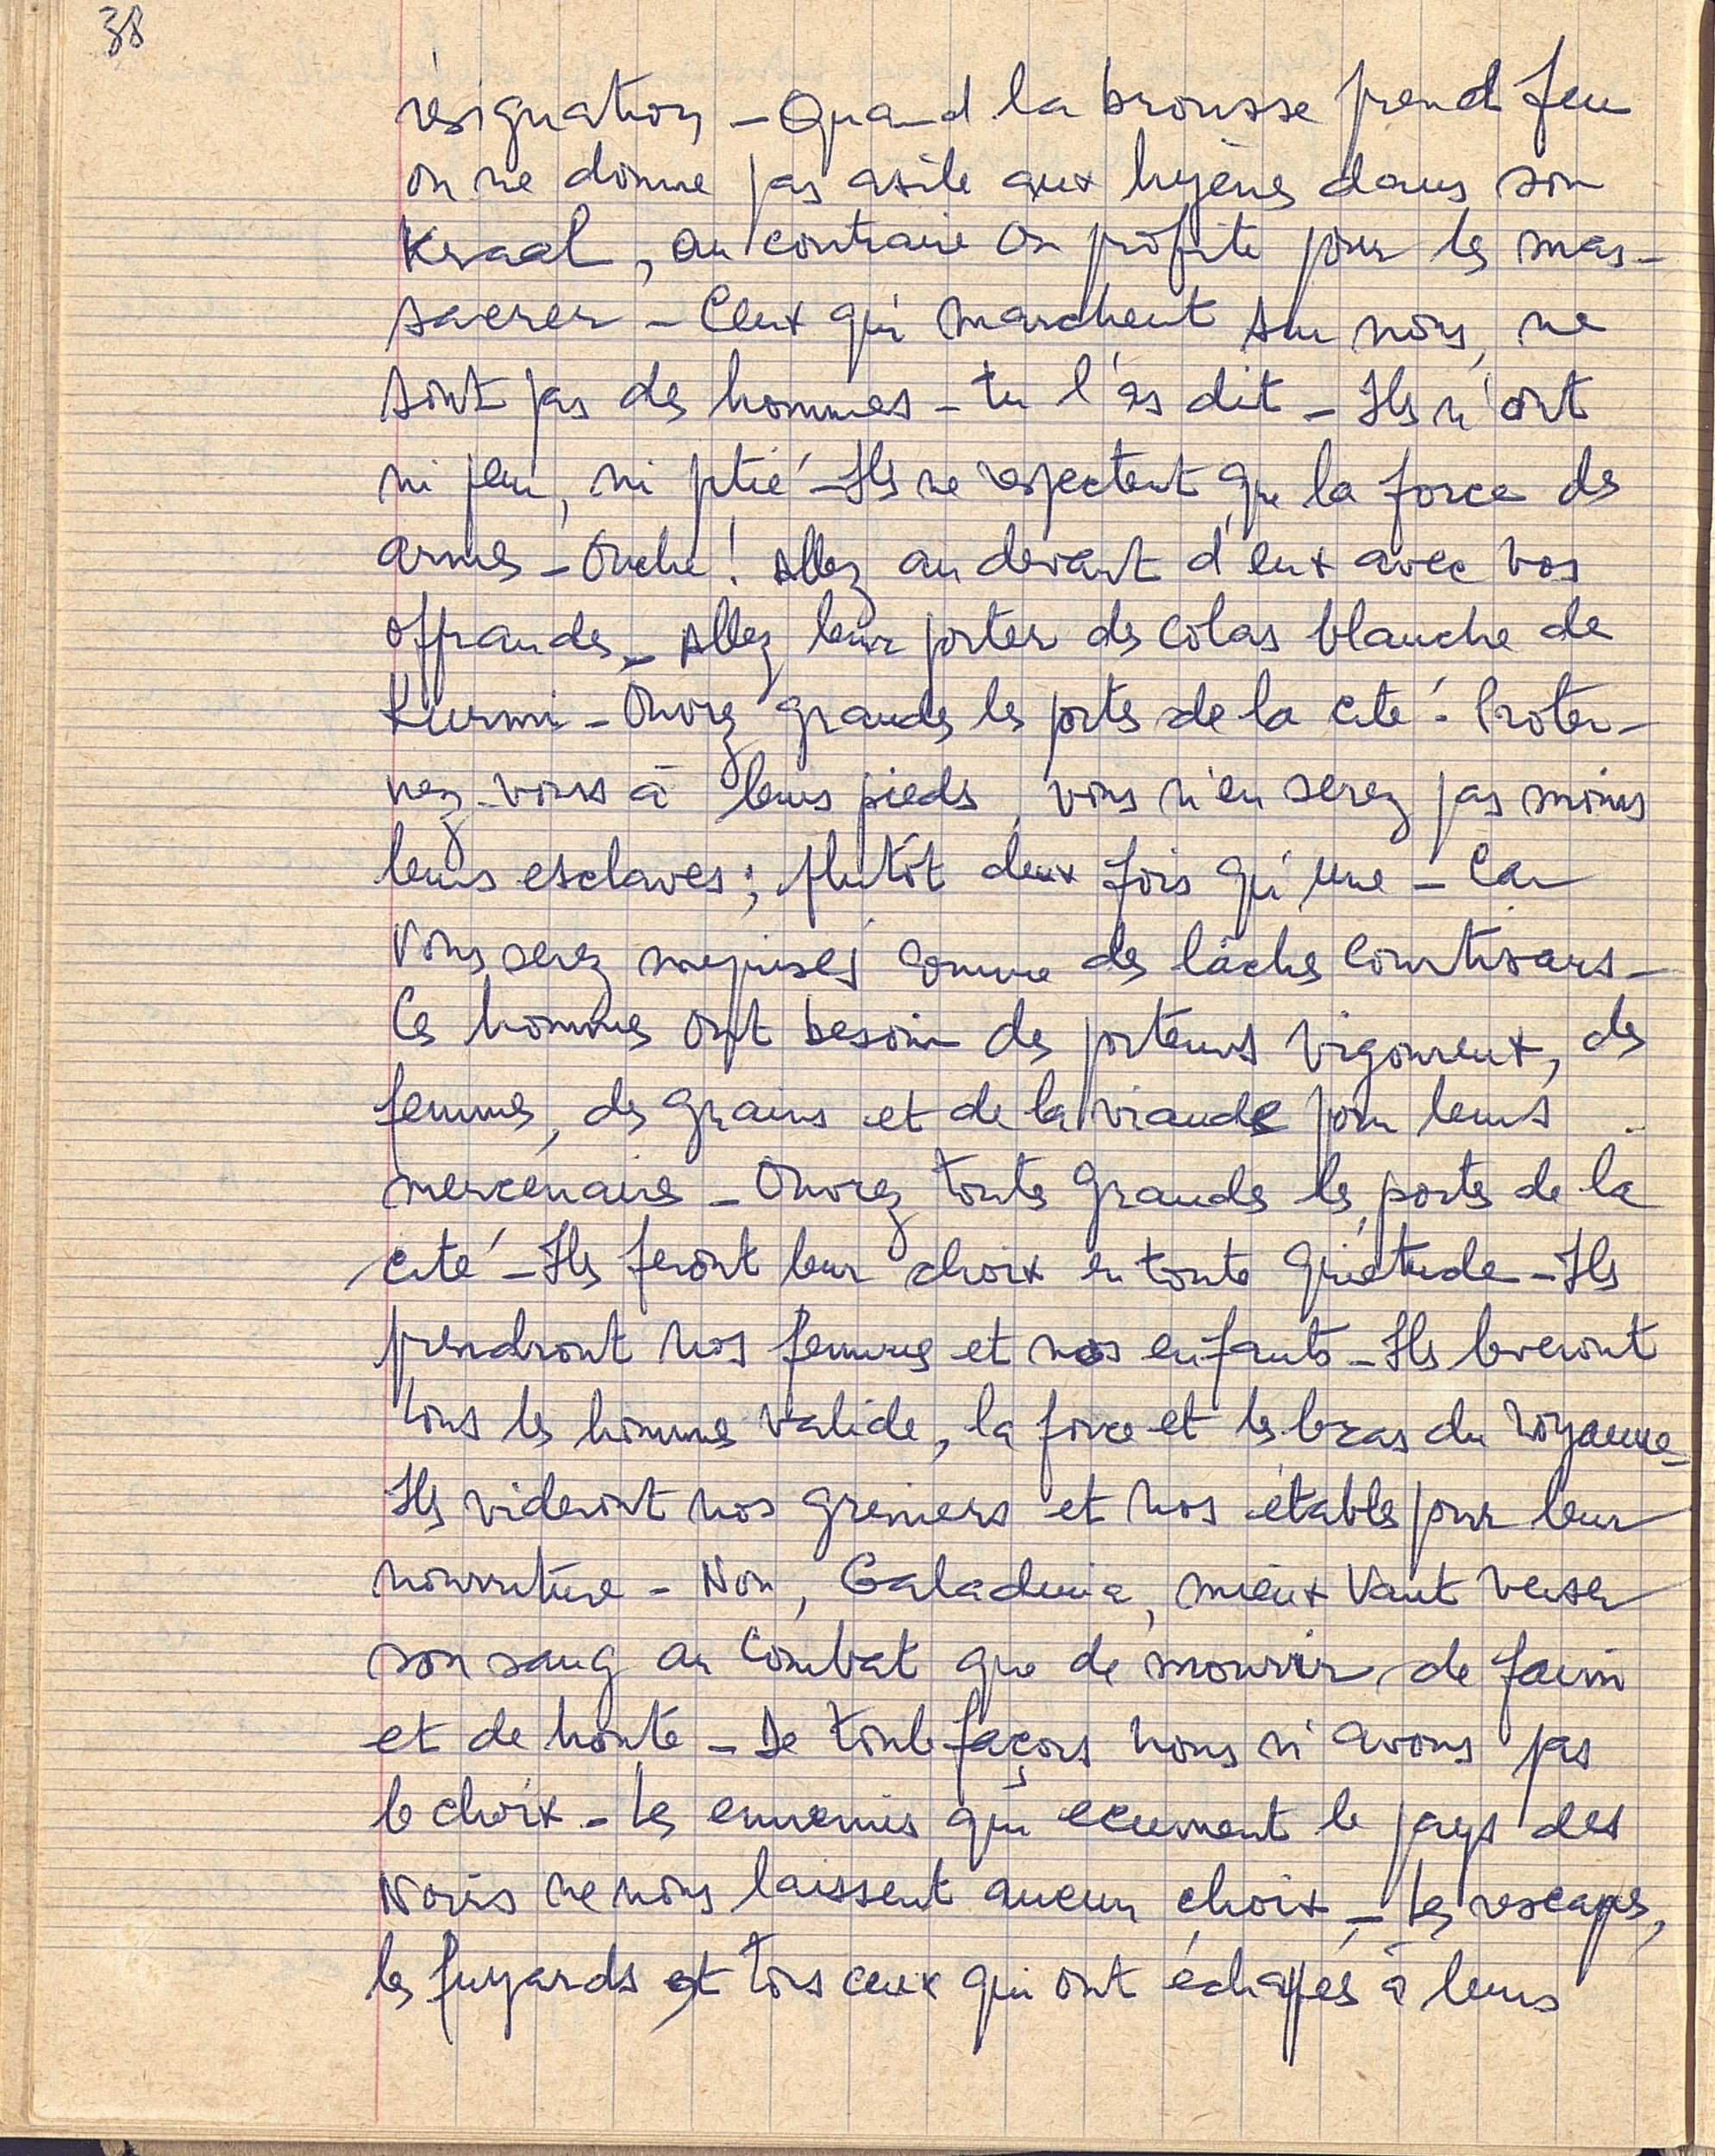 38
résignation – Quand la brousse prend feu
on ne donne pas asile aux hyènes dans son
Kraal, au contraire on profite pour les mas-
sacrer – Ceux qui marchent sur nous, ne
sont pas des hommes – tu l'as dit – Ils n'ont
ni peur, ni pitié – Ils ne respectent que la force des
armes – Ouche ! Allez au devant d'eux avec vos
offrandes – Allez leur porter des colas blanche de
Kurmi – Ouvrez grandes les portes de la cité – Proter-
nez-vous à leurs pieds, vous n'en serez pas moins
leurs esclaves ; plutôt deux fois qu'une – Car
vous serez méprisés comme des lâches courtisans –
Ces hommes ont besoin des porteurs vigoureux, des
femmes, des grains et de la viande pour leurs
mercenaires – Ouvrez toutes grandes les portes de la
cité – Ils feront leur choix en toute quiétude – Ils
prendront nos femmes et nos enfants – Ils lèveront
tous les hommes valide, la force et les bras du royaume –
Ils videront nos greniers et nos étables pour leur
nourriture – Non, Galadima, mieux vaut verser
son sang au combat que de mourir de faim
et de honte – De toute façons nous n'avons pas
le choix – Les ennemis qui écument le pays des
Noirs ne nous laissent aucun choix – Les rescapés,
les fuyards et tous ceux qui ont échappés à leurs